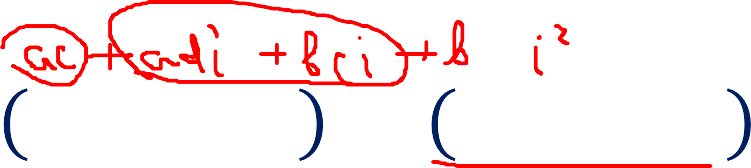 ac + adi + bci + b i²
( ) ( )